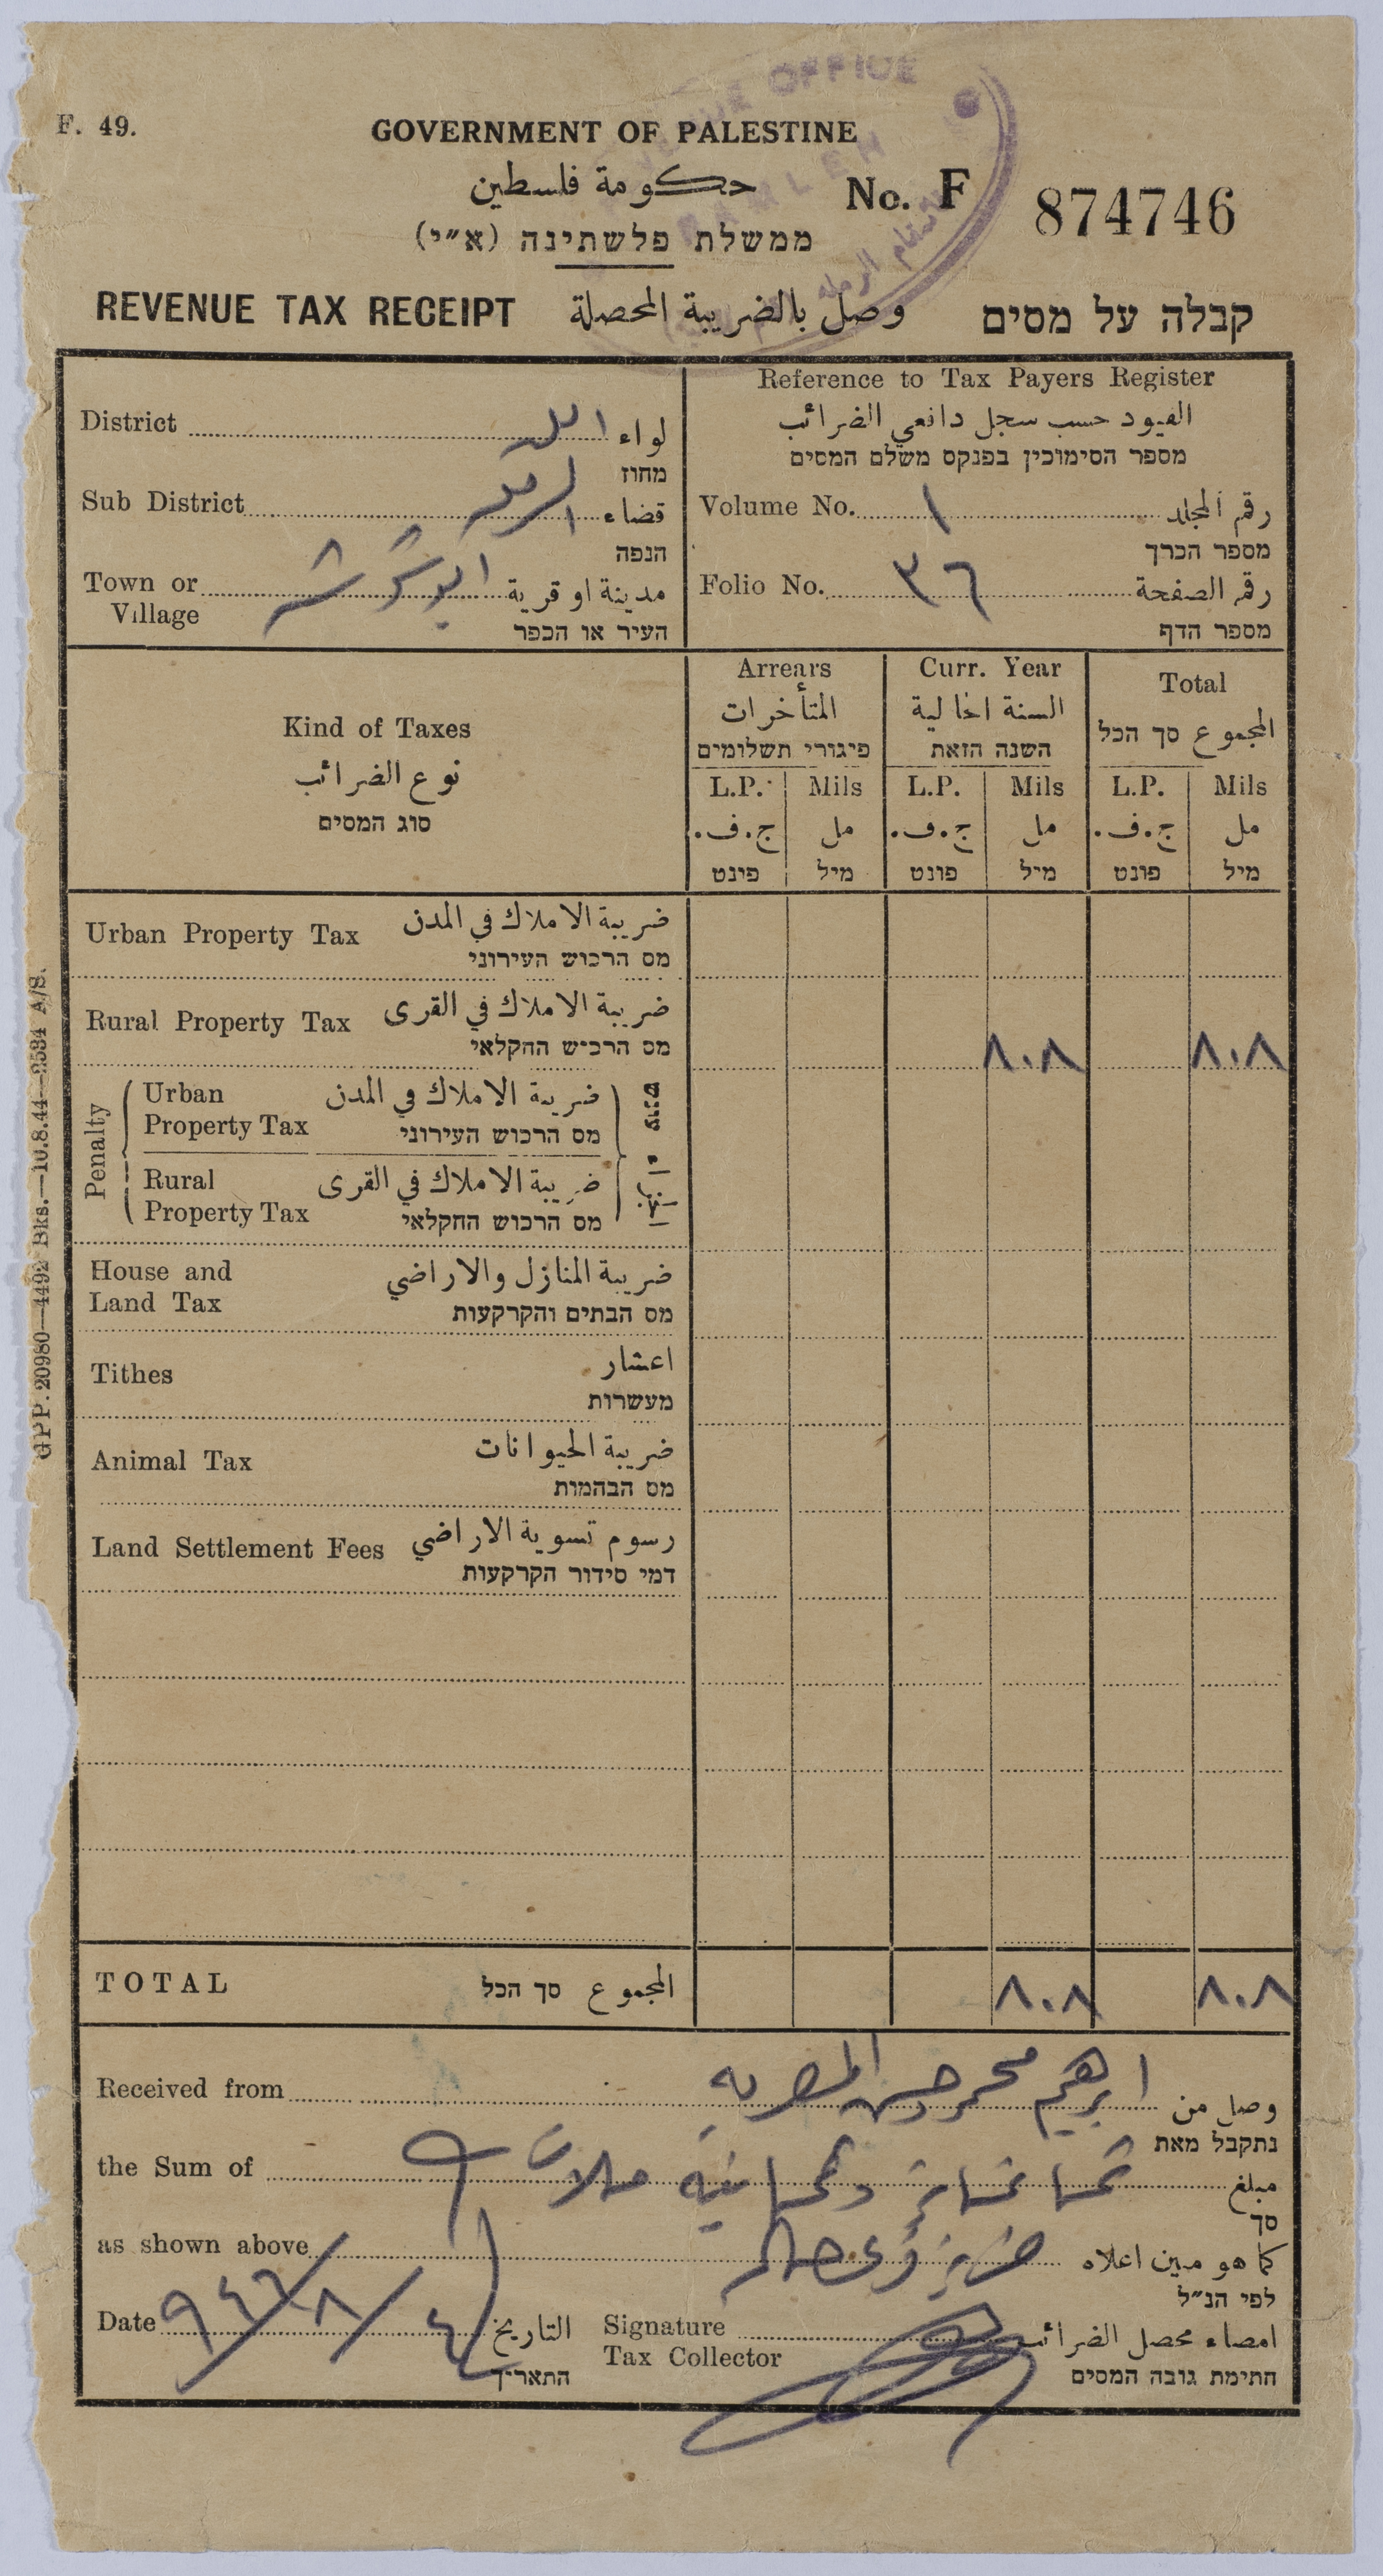 REVENUE OFFICE
RAMLEH
F. 49.
GOVERNMENT OF PALESTINE
حكومة فلسطين
ממשלת פלשתינה (א״י)
No. F 874746
REVENUE TAX RECEIPT وصل بالضريبة المحصلة קבלה על מסים
District لواء اللد
מחוז
Sub District قضاء الرملة
הנפה
Town or Village مدينة او قرية ابو شوشه
העיר או הכפר
Reference to Tax Payers Register
القيود حسب سجل دافعي الضرائب
מספר הסימוכין בפנקס משלם המסים
Volume No. ١ رقم المجلد
מספר הכרך
Folio No. ٣٦ رقم الصفحة
מספר הדף
Kind of Taxes
نوع الضرائب
סוג המסים
Arrears
المتأخرات
פיגורי תשלומים
Curr. Year
السنة الحالية
השנה הזאת
Total
المجموع סך הכל
L.P. Mils L.P. Mils L.P. Mils
ج.ف. مل ج.ف. مل ج.ف. مل
פינט מיל פונט מיל פונט מיל
Urban Property Tax ضريبة الاملاك في المدن
מס הרכוש העירוני
Rural Property Tax ضريبة الاملاك في القرى
מס הרכוש החקלאי
٨٠٨ ٨٠٨
Penalty
Urban Property Tax ضريبة الاملاك في المدن
מס הרכוש העירוני
Rural Property Tax ضريبة الاملاك في القرى
מס הרכוש החקלאי
House and Land Tax ضريبة المنازل والاراضي
מס הבתים והקרקעות
Tithes اعشار
מעשרות
Animal Tax ضريبة الحيوانات
מס הבהמות
Land Settlement Fees رسوم تسوية الاراضي
דמי סידור הקרקעות
TOTAL المجموع סך הכל ٨٠٨ ٨٠٨
Received from وصل من ابرهيم محمد حسن
נתקבל מאת
the Sum of مبلغ ثمانماية وثمانية ملات
סך
as shown above كما هو مبين اعلاه
לפי הנ״ל
Date ٤/٨/٩٤٦ التاريخ
התאריך
Signature Tax Collector امضاء محصل الضرائب
חתימת גובה המסים
GPP. 20980—4492 Bks.—10.8.44—2534 A/S.